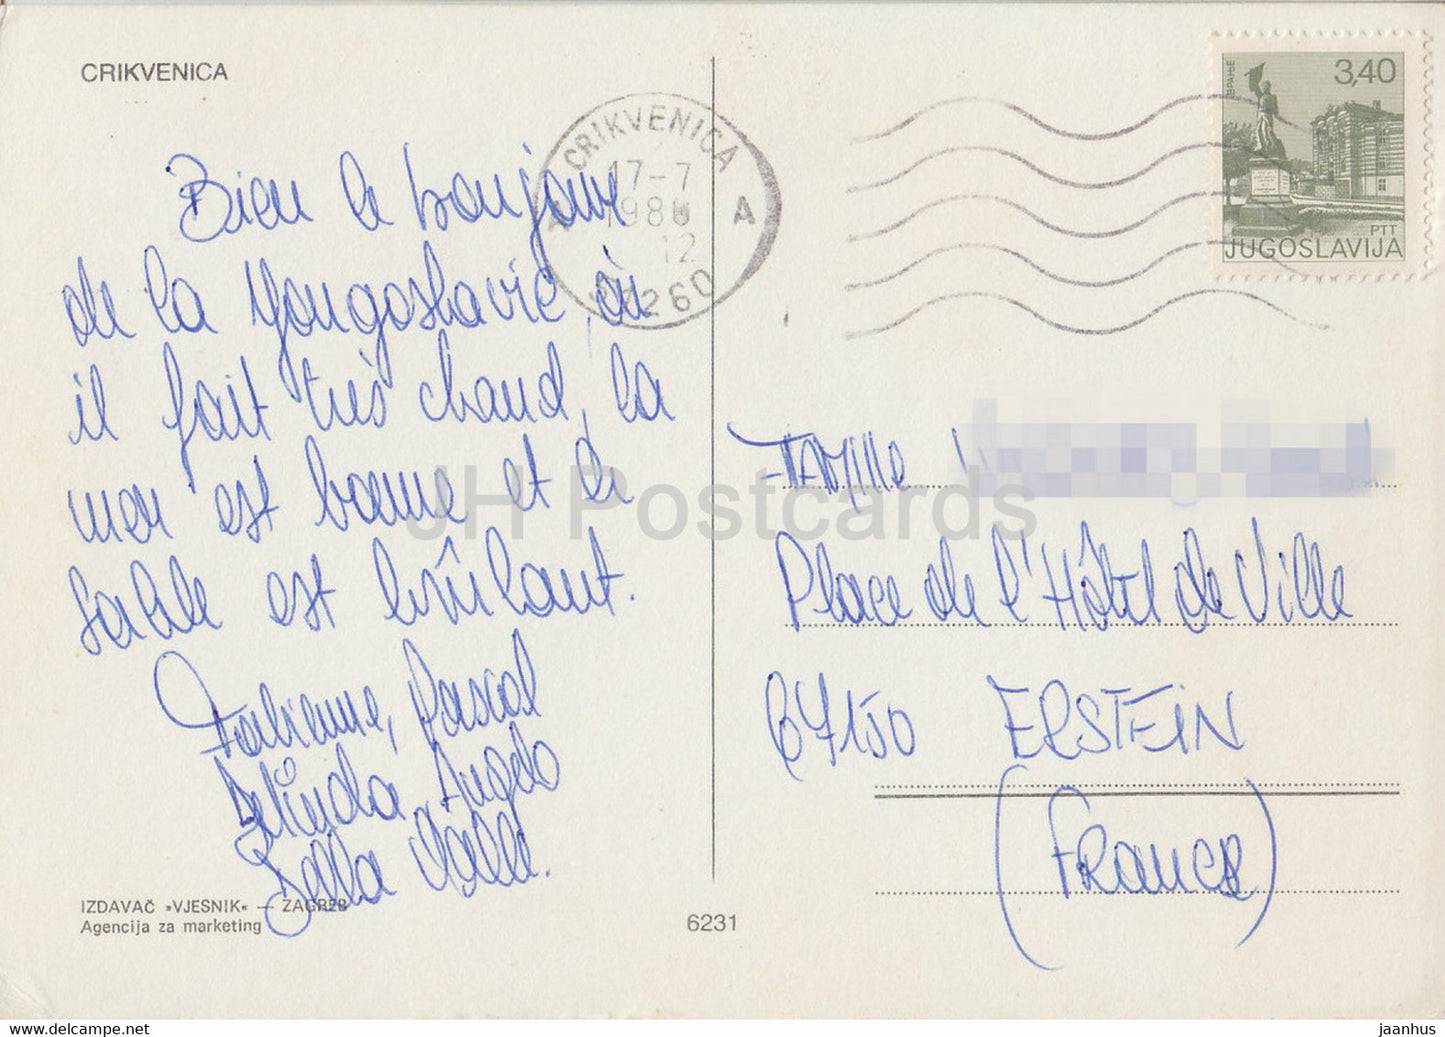 CRIKVENICA
CRIKVENICA
17-7
12
A
ВРАЊЕ
3,40
PTT
JUGOSLAVIJA
Bien le bonjour
de la Yougoslavie, où
il fait très chaud, la
mer est bonne et le
sable est brûlant.
Fabienne, Pascal
Angelo
Bella
IZDAVAČ »VJESNIK« — ZAGREB
Agencija za marketing
6231
FAMille
Place de l'Hôtel de Ville
67150 ERSTEIN
(FRANCE)
JH Postcards
www.delcampe.net
jaanhus